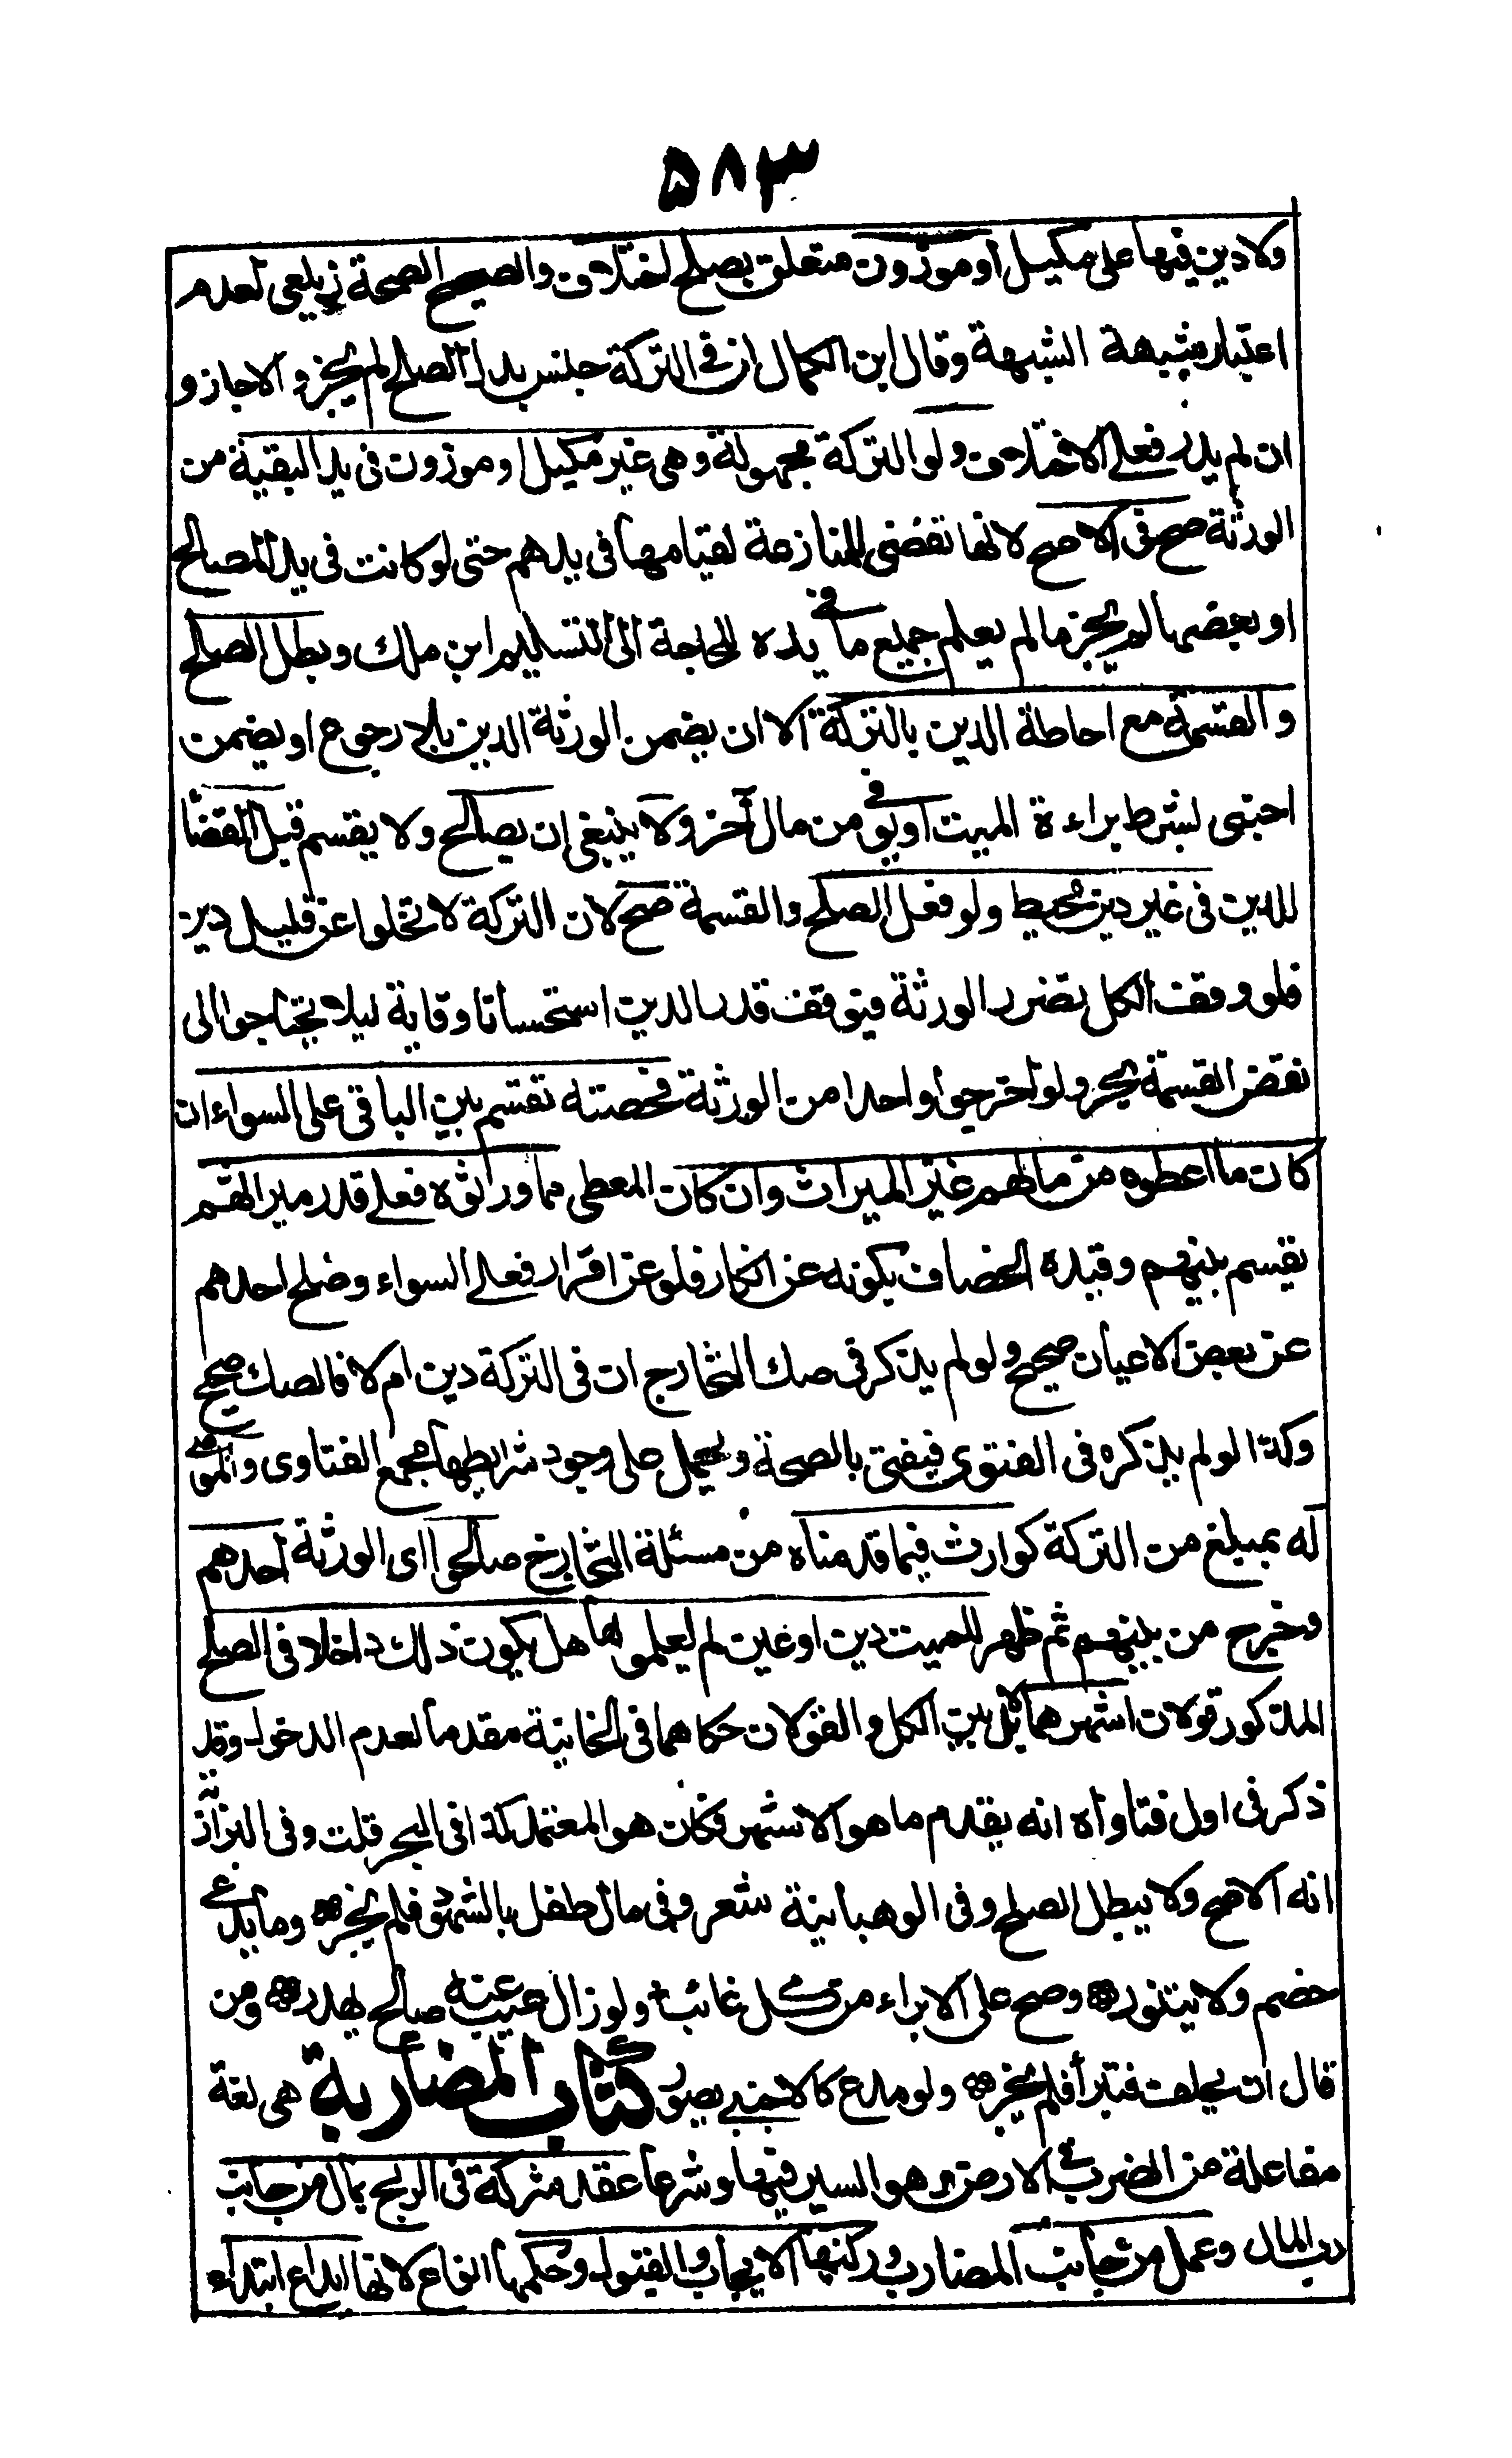 ٥٨٣
ولا دين فيها على مكيل أو موزون متعلق بصلح اختلاف والصحيح الصحة زيلعي لعدم
اعتبار شبهة الشبهة وقال ابن الكمال ان في التركة جنس بدل الصلح لم يجز والا جاز و
ان لم يدر فعلى الاختلاف ولو التركة مجهولة وهي غير مكيل او موزون في يد البقية من
الورثة صح في الاصح لانها لا تفضي للمنازعة لقيامها في يدهم حتى لو كانت في يد المصالح
او بعضها لم يجز ما لم يعلم جميع ما في يده للحاجة الى التسليم ابن ملك وبطل الصلح
والقسمة مع احاطة الدين بالتركة الا ان يضمن الورثة الدين بلا رجوع او يضمن
اجنبي بشرط براءة الميت او يوفى من مال آخر ولا ينبغي ان يصالح ولا يقسم قبل القضاء
للدين في غير دين محيط ولو فعل الصلح والقسمة صح لان التركة لا تخلوا عن قليل دين
فلو وقف الكل تضرر الورثة فيوقف قدر الدين استحسانا وقاية ليلا يحتاجوا الى
نقض القسمة بحر ولو اخرجوا واحدا من الورثة فحصته تقسم بين الباقي على السواء ان
كان ما اعطوه من مالهم غير الميراث وان كان المعطى مما ورثوه فعلى قدر ميراثهم
يقسم بينهم وقيده الخصاف بكونه عن انكار فلو عن اقرار فعلى السواء وصلح احدهم
عن بعض الاعيان صحيح ولو لم يذكر في صك التخارج ان في التركة دين ام لا فالصك صحيح
وكذا لو لم يذكره في الفتوى فيفتى بالصحة ويحمل على وجود شرايطها مجمع الفتاوى والموصى
له بمبلغ من التركة كوارث فيما قدمناه من مسئلة التخارج صالحوا اى الورثة احدهم
وخرج من بينهم ثم ظهر للميت دين او عين لم يعلموها هل يكون ذلك داخلا في الصلح
المذكور قولان اشهرهما لا بل بين الكل والقولان حكاهما في الخانية مقدما لعدم الدخول وقد
ذكر في اول فتاواه انه يقدم ما هو الاشهر فكان هو المعتمد كذا في البحر قلت وفي البزازية
انه الاصح ولا يبطل الصلح وفي الوهبانية شعر وفي مال طفل بالشهود فلم يجز وما يدعي
خصم ولا يتنور وصح على الابراء من كل غائب ولو زال عيب عنه صالح يهدر ومن
قال ان يحلف فتبرأ فلم يجز ولو مدع كالاجنبي يصور كتاب المضاربة هي لغة
مفاعلة من الضرب في الارض وهو السير فيها وشرعا عقد شركة في الربح بمال من جانب
رب المال وعمل من جانب المضارب وركنها الايجاب والقبول وحكمها انواع لانها ايداع ابتداء